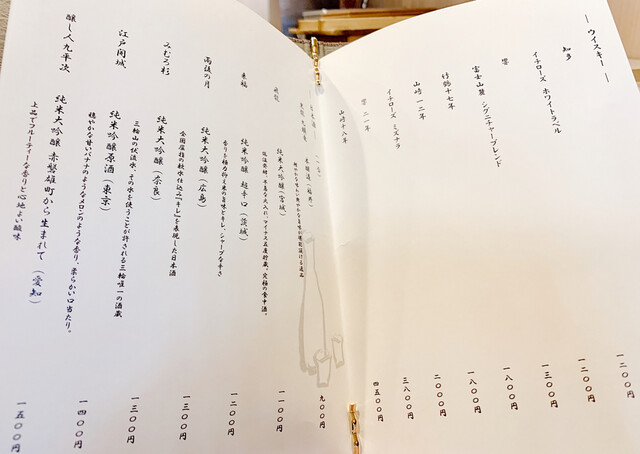 ― ウイスキー ―
知多 一二〇〇円
イチローズ ホワイトラベル 一二〇〇円
響 一三〇〇円
富士山麓 シグニチャーブレンド 一八〇〇円
竹鶴十七年 一八〇〇円
山崎 一二年 二〇〇〇円
イチローズ ミズナラ 三八〇〇円
響 二一年 四五〇〇円
山崎十八年
本醸造(福井) 九〇〇円
純米大吟醸(宮城) 一一〇〇円
来福 純米吟醸 超辛口(茨城) 一二〇〇円
香りを極力抑え米の旨味とキレ、シャープな辛さ
雨後の月 純米大吟醸(広島) 一三〇〇円
全国屈指の軟水仕込み『キレ』を表現した日本酒
みむろ杉 純米大吟醸(奈良) 一三〇〇円
三輪山の伏流水、その水を使うことが許される三輪唯一の酒蔵
江戸開城 純米吟醸原酒(東京) 一四〇〇円
穏やかな甘いバナナのようなメロンのような香り、柔らかい口当たり。
醸し人九平次 純米大吟醸 赤磐雄町から生まれて(愛知) 一五〇〇円
上品でフルーティーな香りと心地よい酸味